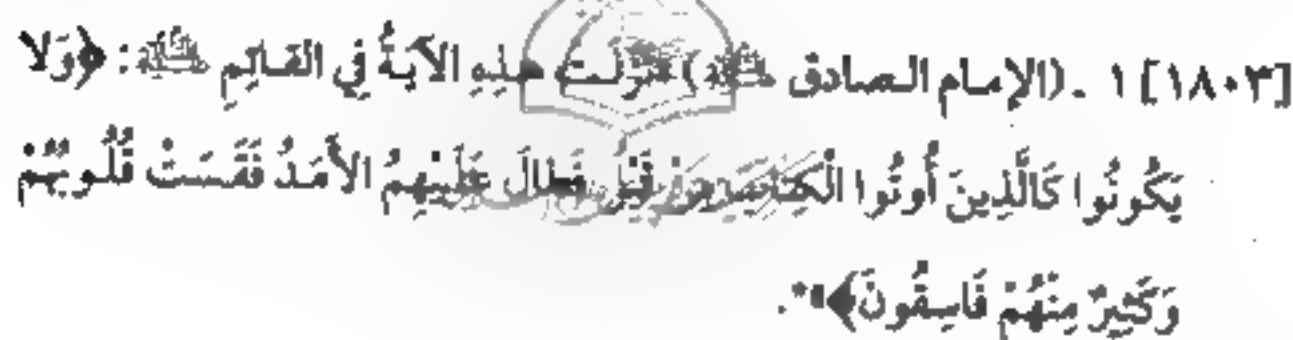 [١٨٠٣] ١ ـ (الإمام الصادق ﷵ) نَزَلَت هذِهِ الآيَةُ فِي القائِمِ: ﴿وَلا
يَكُونُوا كَالَّذِينَ أُوتُوا الْكِتَابَ مِن قَبْلُ فَطَالَ عَلَيْهِمُ الأَمَدُ فَقَسَتْ قُلُوبُهُمْ
وَكَثِيرٌ مِنْهُمْ فَاسِقُونَ﴾"*.